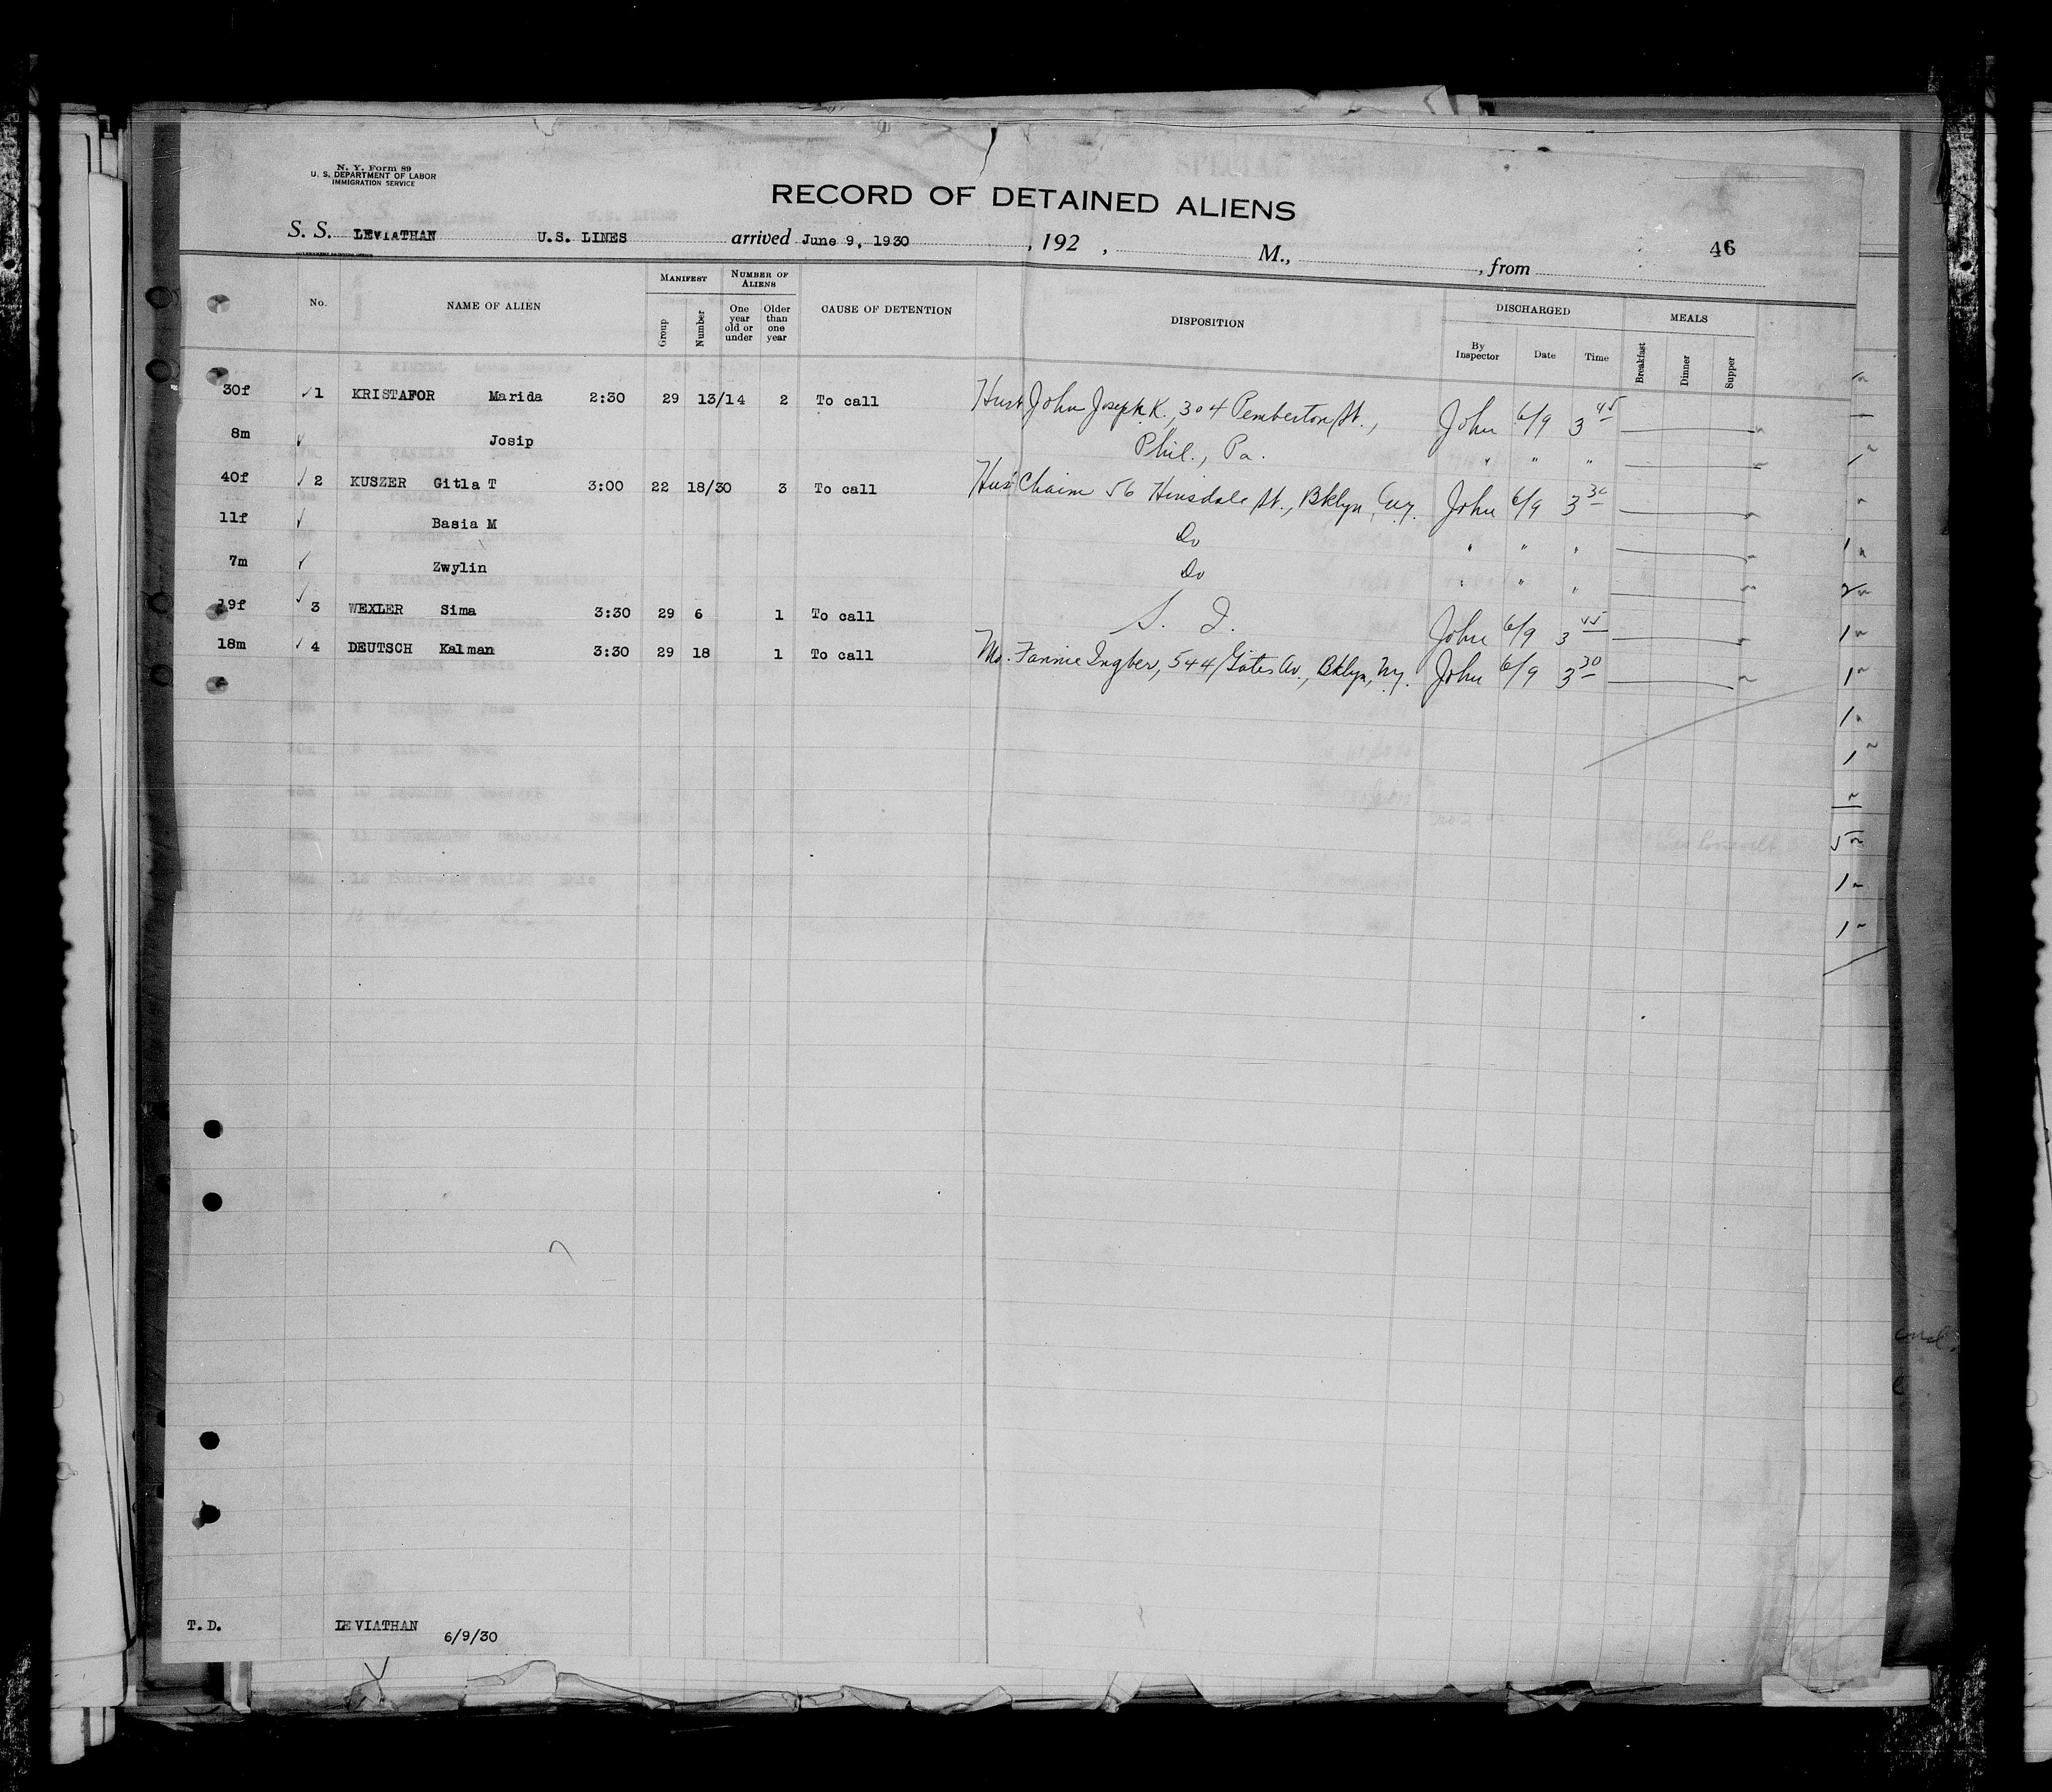 N. Y. Form 89
U. S. DEPARTMENT OF LABOR
IMMIGRATION SERVICE
RECORD OF DETAINED ALIENS
S. S. LEVIATHAN U.S. LINES arrived June 9, 1930, 192 , M., , from 46
No. NAME OF ALIEN MANIFEST Group Number NUMBER OF ALIENS One year old or under Older than one year CAUSE OF DETENTION DISPOSITION DISCHARGED By Inspector Date Time MEALS Breakfast Dinner Supper
30f ✓ 1 KRISTAFOR Marida 2:30 29 13/14 2 To call Husb John Joseph K., 304 Pemberton St., John 6/9 3 45
8m ✓ Josip Phil., Pa. " " "
40f ✓ 2 KUSZER Gitla T 3:00 22 18/30 3 To call Hus Chaim 56 Hinsdale St., Bklyn, N.Y. John 6/9 3 30
11f ✓ Basia M Do " " "
7m ✓ Zwylin Do " " "
19f ✓ 3 WEXLER Sima 3:30 29 6 1 To call S. I. John 6/9 3 45
18m ✓ 4 DEUTSCH Kalman 3:30 29 18 1 To call Mo. Fannie Ingber, 544 Gates Av., Bklyn, N.Y. John 6/9 3 30
T.D. LEVIATHAN 6/9/30